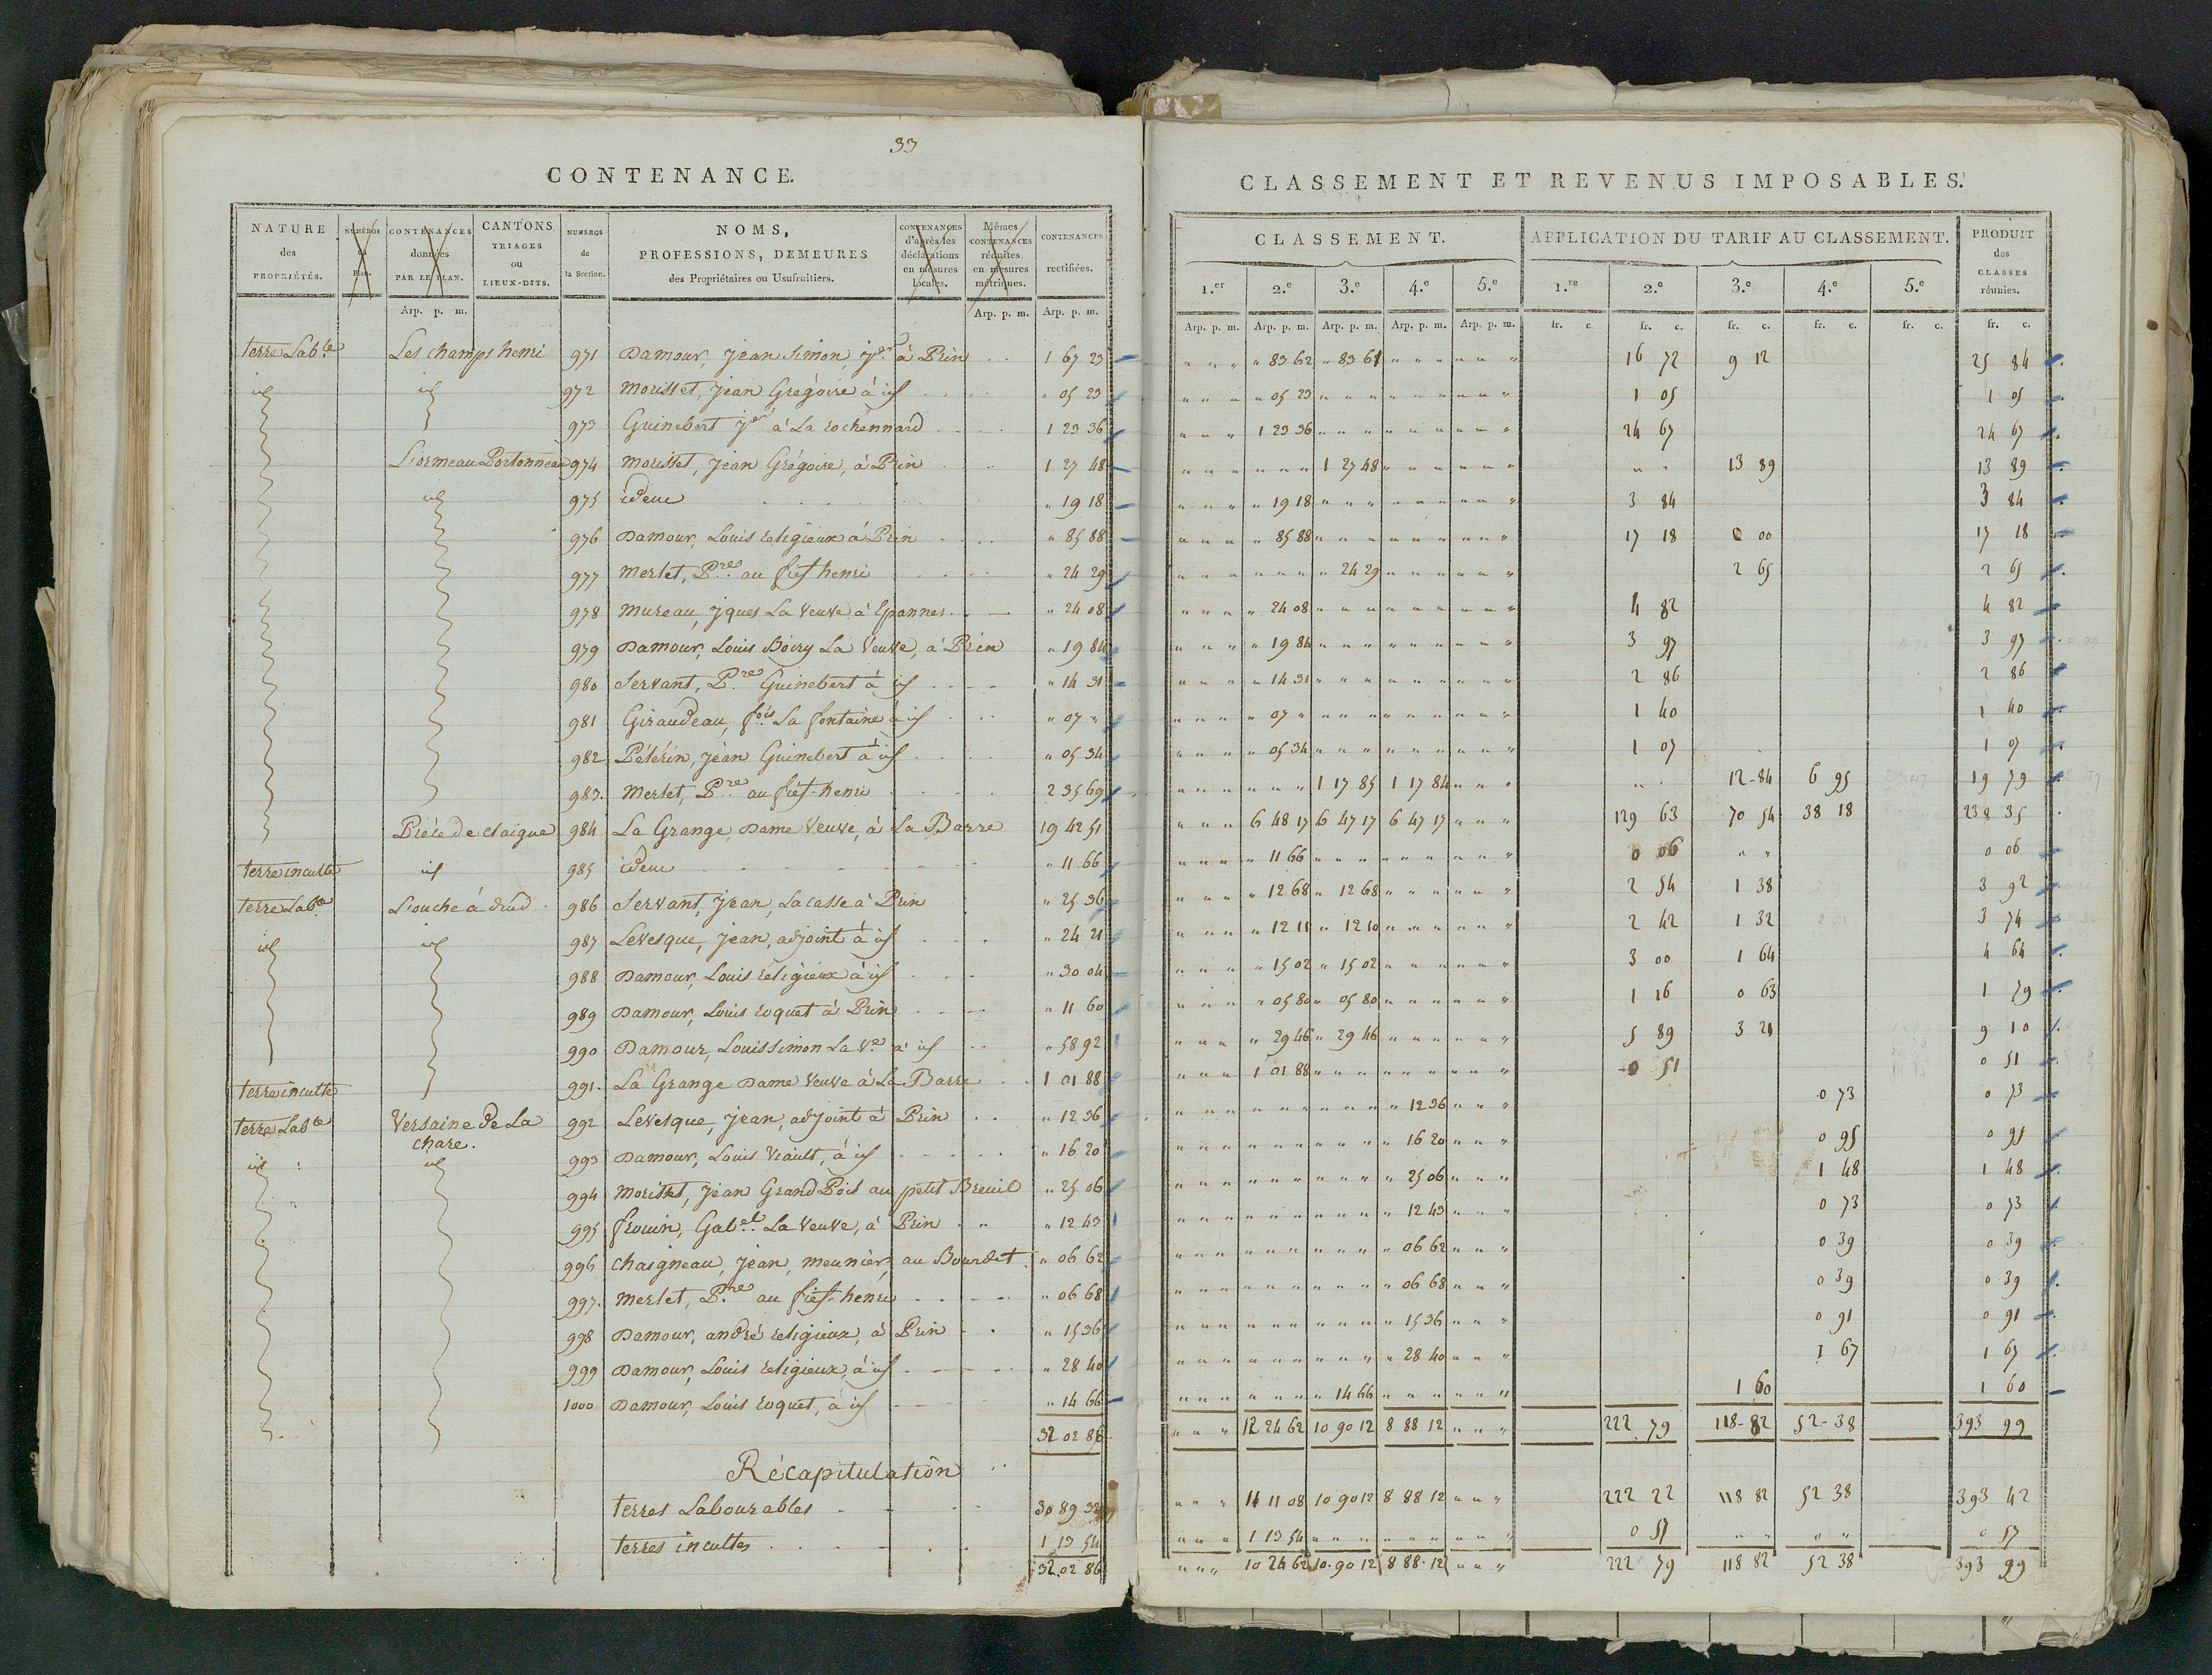 33
CONTENANCE.
NATURE des PROPRIÉTÉS.
NUMÉROS du Plan.
CONTENANCES données PAR LE PLAN.
CANTONS, TRIAGES ou LIEUX-DITS.
NUMÉROS de la Section.
NOMS, PROFESSIONS, DEMEURES des Propriétaires ou Usufruitiers.
CONTENANCES d'après les déclarations en mesures locales.
Mêmes CONTENANCES réduites en mesures métriques.
CONTENANCES rectifiées.
Arp. p. m. Arp. p. m. Arp. p. m.
terre Lab.le Les champs henri 971 Damour, Jean Simon, j.er à Prin 1 67 23
id id 972 Morisset, Jean Grégoire à id " 05 23
973 Guinebert j.er à La rochénard 1 23 36
L'ormeau Portonneau 974 Morisset, Jean Grégoire, à Prin 1 27 48
id 975 idem " 19 18
976 Damour, Louis religieux à Prin " 85 88
977 Merlet, P.re au fief henri " 24 29
978 Mureau, Jques La Veuve à Epannes " 24 08
979 Damour, Louis Boiry La Veuve, à Prin " 19 84
980 Servant, P.re Guinebert à id " 14 31
981 Giraudeau, f.ois La fontaine à id " 07 "
982 Pélérin, Jean Guinebert à id " 05 34
983. Merlet, P.re au fief-henri 2 35 69
Pièce de chaigne 984 La Grange, Dame Veuve, à La Barre 19 42 51
terre inculte id 985 idem " 11 66
terre Lab.le L'ouche à drud 986 Servant, Jean, Lacasse à Prin " 25 36
id id 987 Levesque, Jean, adjoint à id " 24 21
988 Damour, Louis religieux à id " 30 04
989 Damour, Louis roquet à Prin " 11 60
990 Damour, Louis Simon La V.e à id " 58 92
terre inculte 991. La Grange Dame Veuve à La Barre 1 01 88
terre Lab.le Versaine de La chare. 992 Levesque, Jean, adjoint à Prin " 12 36
id id 993 Damour, Louis Viault, à id " 16 20
994 Morisset, Jean Grand Pois au petit Breuil " 25 06
995 frouin, Gab.el La Veuve, à Prin " 12 43
996 Chaigneau, Jean, meunier, au Bourdet " 06 62
997. Merlet, P.re au fief-henri " 06 68
998 Damour, andré religieux, à Prin " 15 36
999 Damour, Louis religieux, à id " 28 40
1000 Damour, Louis roquet, à id " 14 66
32 02 86
Récapitulation
terres Labourables 30 89 32
terres incultes 1 13 54
32 02 86
CLASSEMENT ET REVENUS IMPOSABLES.
CLASSEMENT. APPLICATION DU TARIF AU CLASSEMENT. PRODUIT des CLASSES réunies.
1.er 2.e 3.e 4.e 5.e 1.re 2.e 3.e 4.e 5.e
Arp. p. m. Arp. p. m. Arp. p. m. Arp. p. m. Arp. p. m. fr. c. fr. c. fr. c. fr. c. fr. c. fr. c.
" 83 62 " 83 61 16 72 9 12 25 84
" 05 23 1 05 1 05
1 23 36 24 67 24 67
1 27 48 13 89 13 89
" 19 18 3 84 3 84
" 85 88 17 18 0 00 17 18
" 24 29 2 65 2 65
" 24 08 4 82 4 82
" 19 84 3 97 3 97
" 14 31 2 86 2 86
" 07 " 1 40 1 40
" 05 34 1 07 1 07
1 17 85 1 17 84 12-84 6 95 19 79
6 48 17 6 47 17 6 47 17 129 63 70 54 38 18 238 35
" 11 66 0 06 " " 0 06
" 12 68 " 12 68 2 54 1 38 3 92
" 12 11 " 12 10 2 42 1 32 3 74
" 15 02 " 15 02 3 00 1 64 4 64
" 05 80 " 05 80 1 16 0 63 1 79
" 29 46 " 29 46 5 89 3 21 9 10
1 01 88 0 51 0 51
" 12 36 0 73 0 73
" 16 20 0 95 0 95
" 25 06 1 48 1 48
" 12 43 0 73 0 73
" 06 62 0 39 0 39
" 06 68 0 39 0 39
" 15 36 0 91 0 91
" 28 40 1 67 1 67
" 14 66 1 60 1 60
12 24 62 10 90 12 8 88 12 222 79 118-82 52-38 393 99
11 11 08 10 90 12 8 88 12 222 22 118 82 52 38 393 42
1 13 54 0 57 " " " " 0 57
10 24 62 10.90 12 8 88.12 222 79 118 82 52 38 393 99